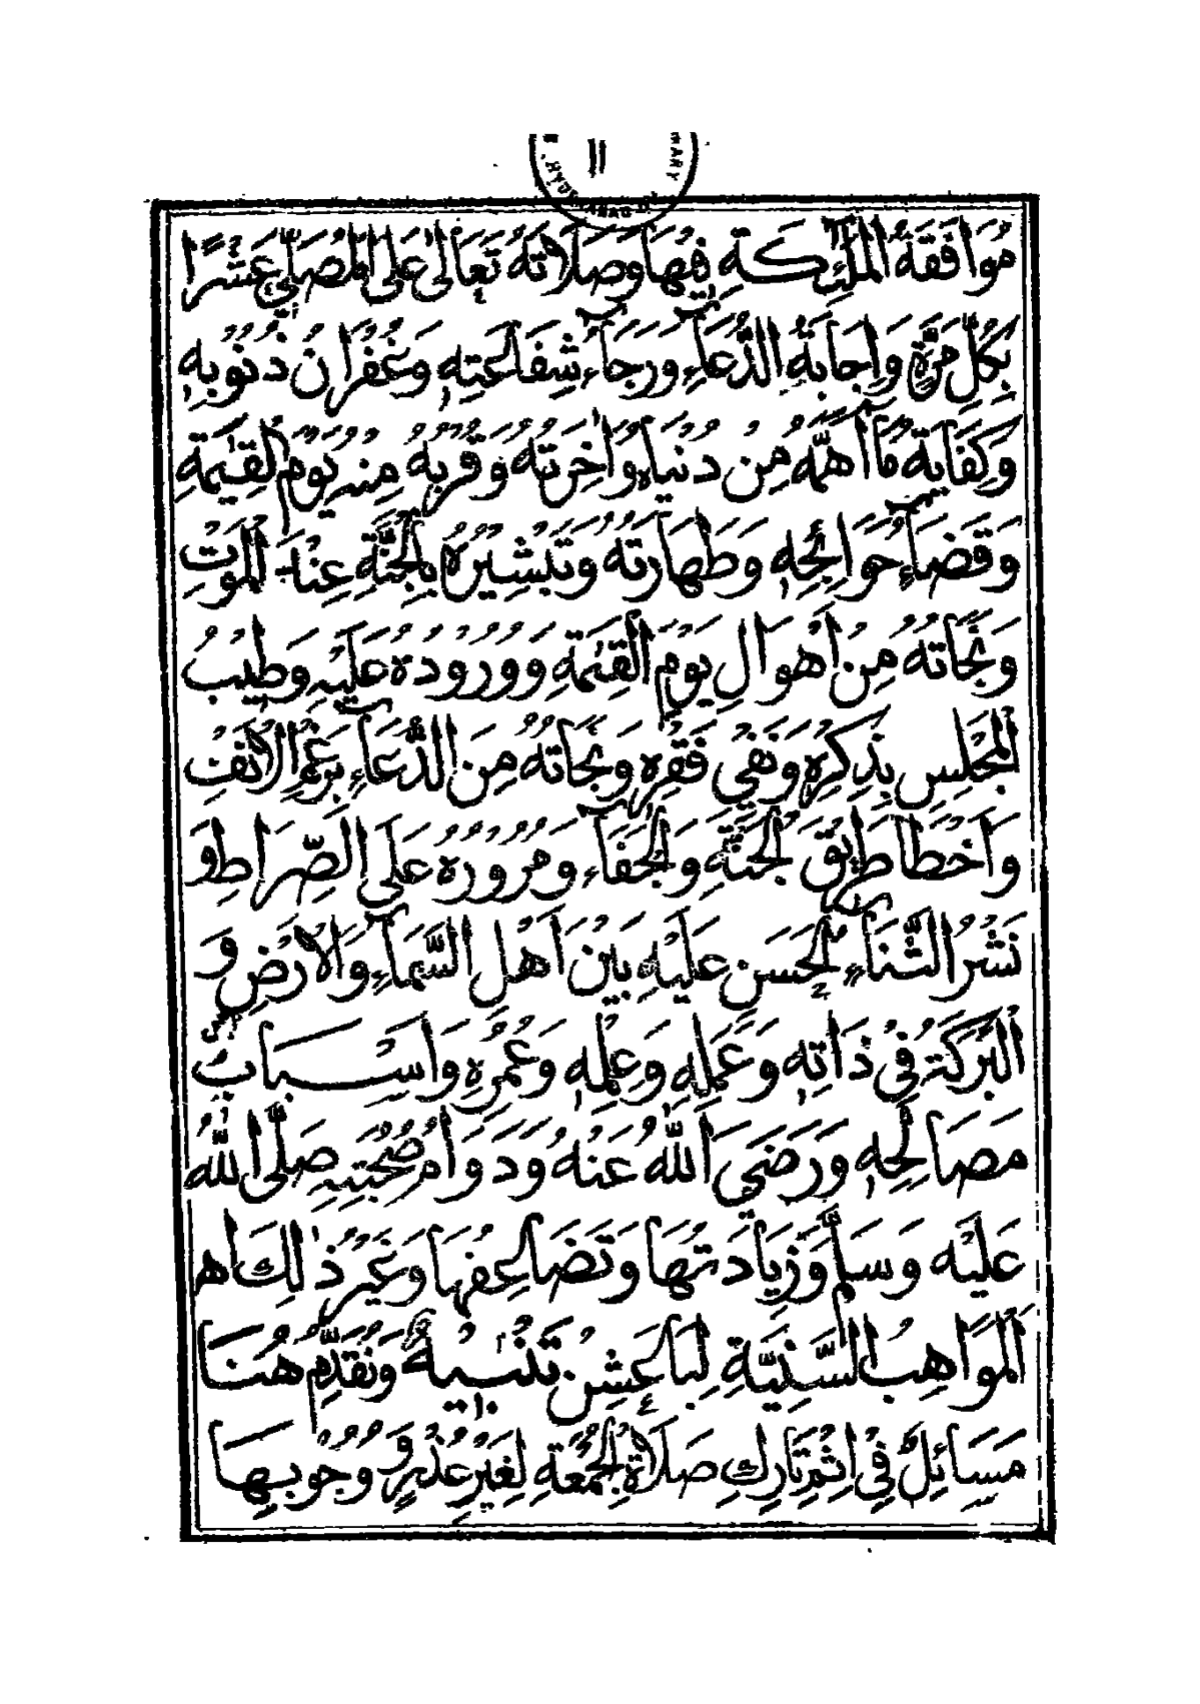 ١١
مُوَافَقَةُ الْمَلٰئِكَةِ فِيْهَا وَصَلَاتُهُ تَعَالٰى عَلَى الْمُصَلِّيْ عَشْرًا
بِكُلِّ مَرَّةٍ وَاِجَابَةُ الدُّعَآءِ وَرَجَآءُ شِفَاعَتِهٖ وَغُفْرَانُ ذُنُوْبِهٖ
وَكِفَايَةُ مَآ اَهَمَّهُ مِنْ دُنْيَاهُ وَاٰخِرَتِهٖ وَقُرْبُهُ مِنْهِ يَوْمَ الْقِيٰمَةِ
وَقَضَآءُ حَوَائِجِهٖ وَطَهَارَتُهُ وَتَبْشِيْرُهُ بِالْجَنَّةِ عِنْدَ الْمَوْتِ
وَنَجَاتُهُ مِنْ اَهْوَالِ يَوْمِ الْقِيٰمَةِ وَوُرُوْدُهُ عَلَيْهِ وَطِيْبُ
الْمَجْلِسِ بِذِكْرِهٖ وَنَفْيُ فَقْرِهٖ وَنَجَاتُهُ مِنَ الدُّعَآءِ بِرَغْمِ الْاَنْفِ
وَاَخْطَا طَرِيْقَ الْجَنَّةِ وَالْجَفَآءِ وَمُرُوْرُهُ عَلَى الصِّرَاطِ وَ
نَشْرُ الثَّنَآءِ الْحَسَنِ عَلَيْهِ بَيْنَ اَهْلِ السَّمَآءِ وَالْاَرْضِ وَ
الْبَرَكَةُ فِيْ ذَاتِهٖ وَعَمَلِهٖ وَعِلْمِهٖ وَعُمْرِهٖ وَاَسْبَابِ
مَصَالِحِهٖ وَرَضِيَ اللهُ عَنْهُ وَدَوَامُ مُحَبَّتِهٖ صَلَّى اللهُ
عَلَيْهِ وَسَلَّمَ وَزِيَادَتُهَا وَتَضَاعُفُهَا وَغَيْرُ ذٰلِكَ اھ
الْمَوَاهِبُ السَّنِيَّةِ لِبَاعِشِنْ تَنْبِيْهٌ وَنُقَدِّمُ هُنَا
مَسَائِلَ فِيْ اِثْمِ تَارِكِ صَلَاةِ الْجُمُعَةِ لِغَيْرِ عُذْرٍ وَ وُجُوْبِهَا